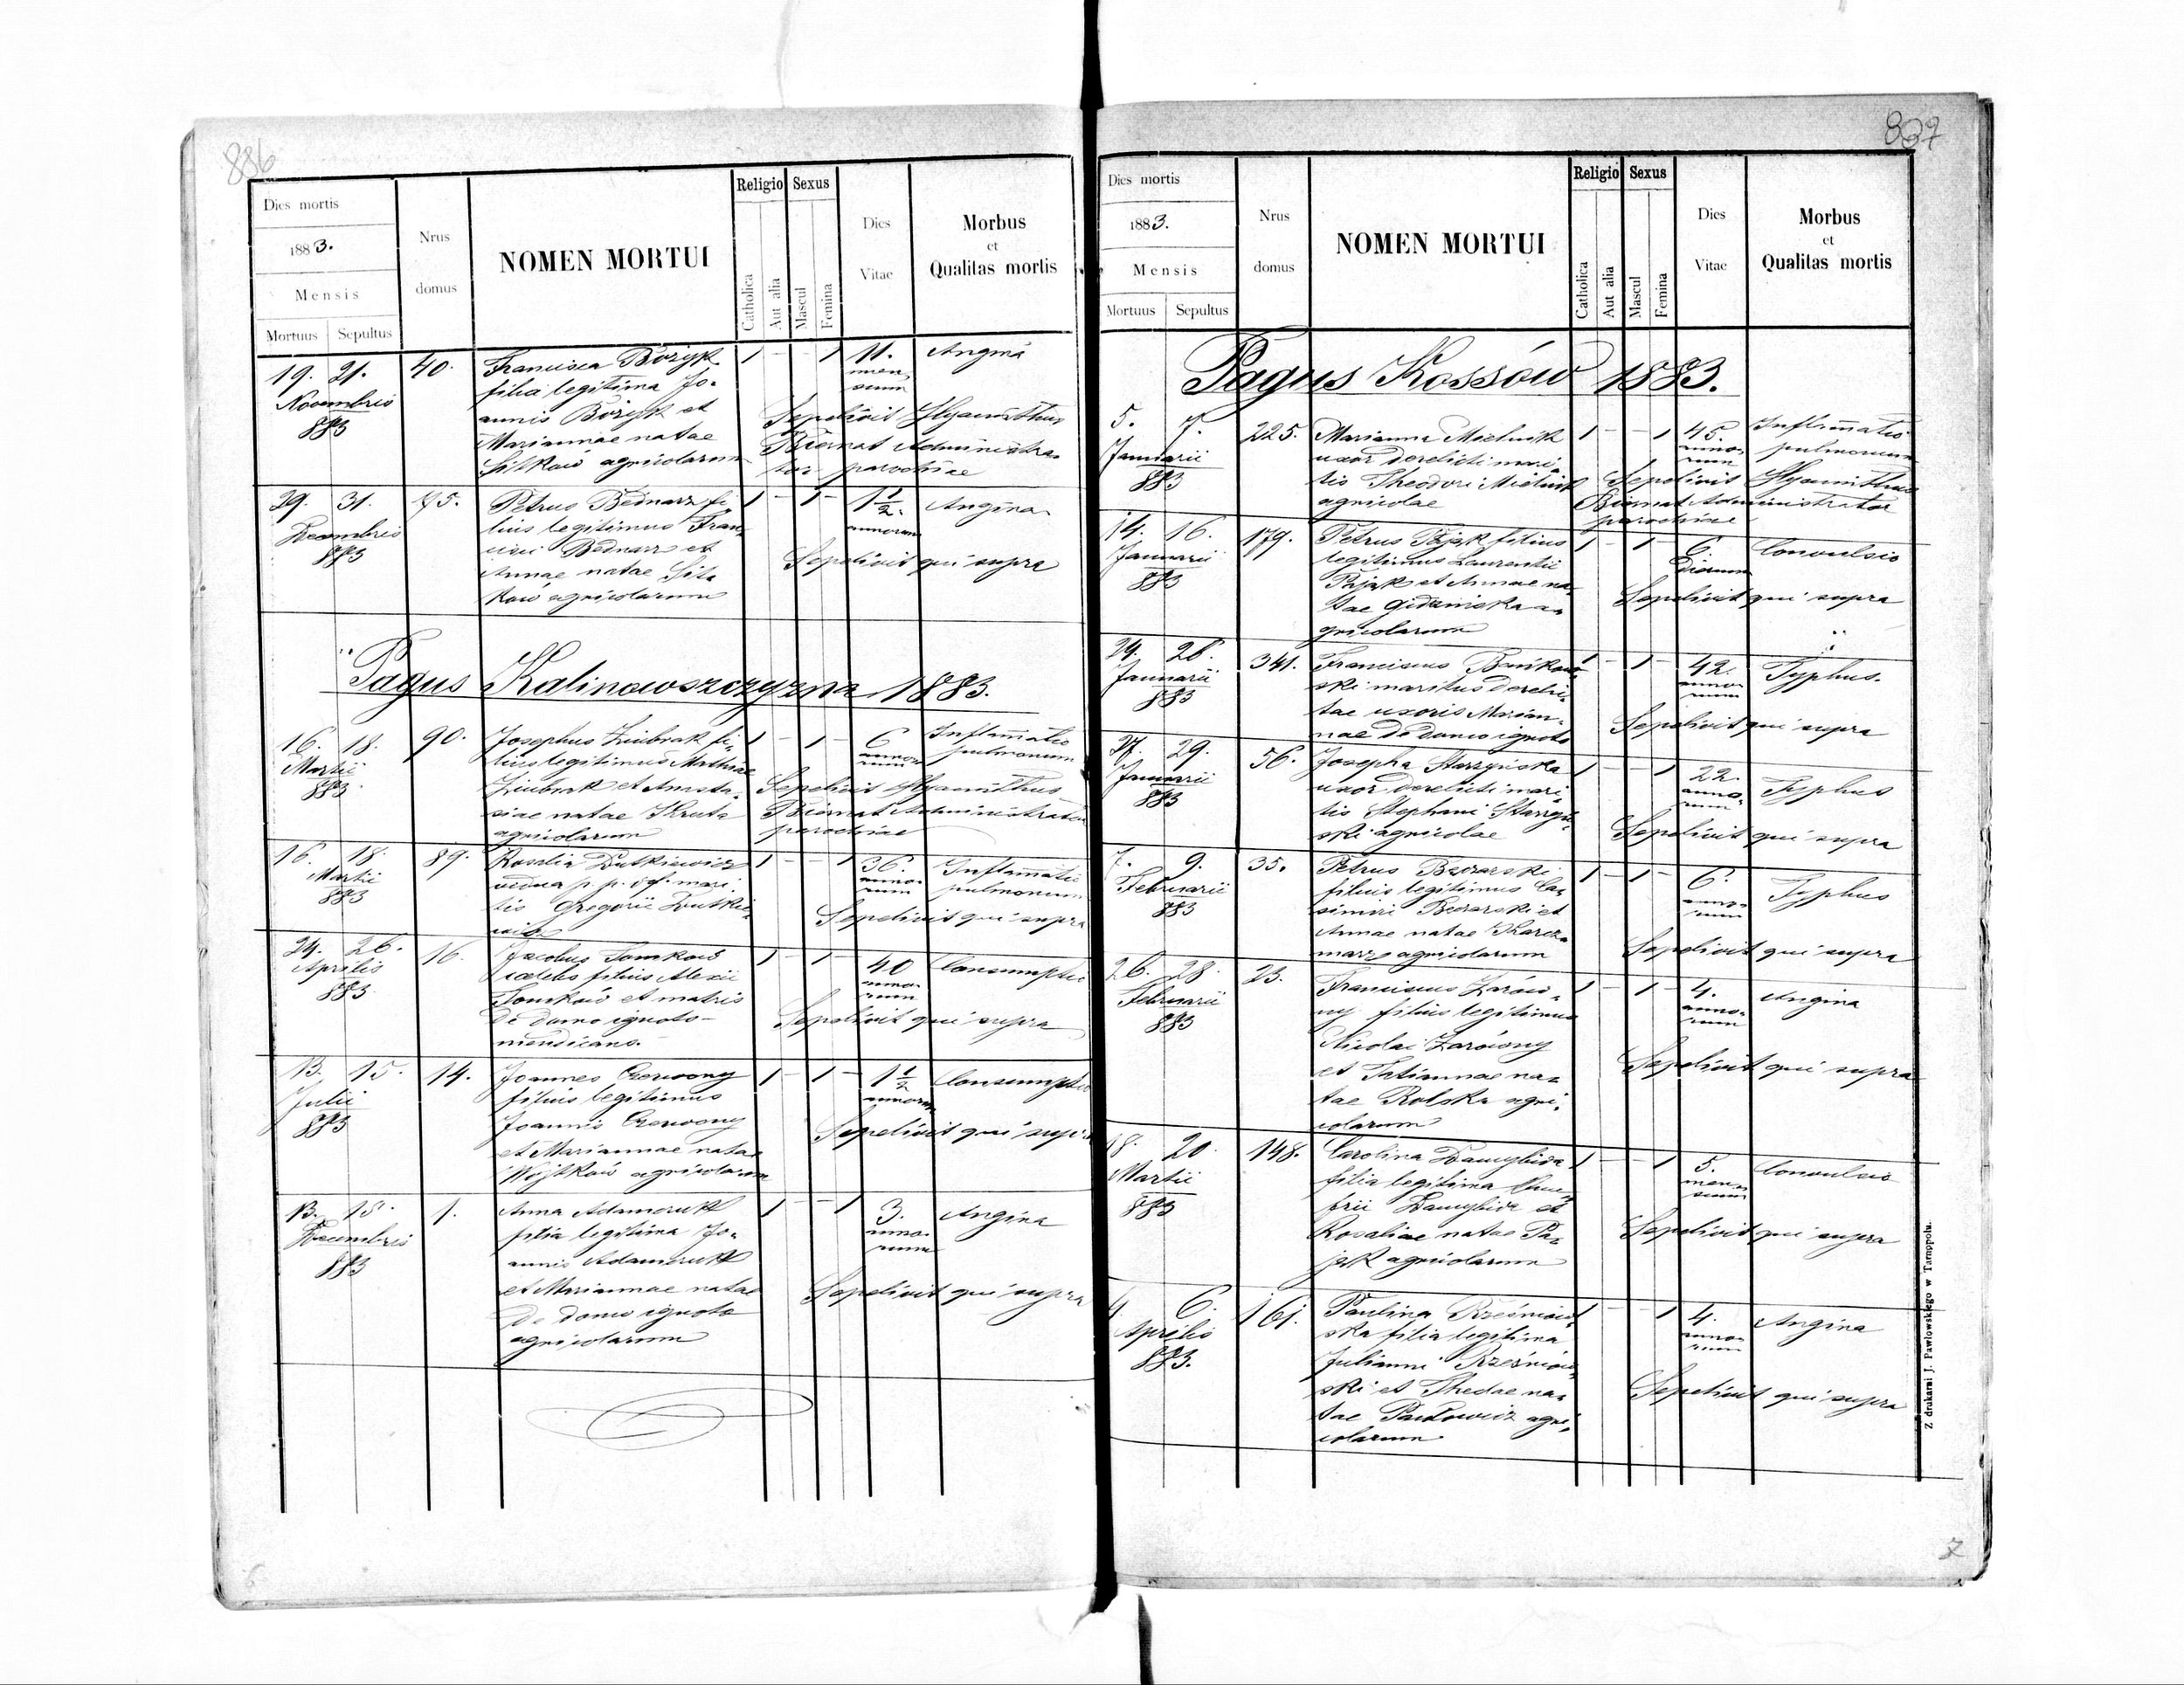 886
Dies mortis
1883.
Mensis
Mortuus Sepultus
Nrus
domus
NOMEN MORTUI
Religio
Catholica
Aut alia
Sexus
Mascul
Femina
Dies
Vitae
Morbus
et
Qualitas mortis
19. 21.
Novembris
883
40.
Francisca Bożyk
filia legitima Jo-
annis Bożyk et
Mariannae natae
Sitkow agricolarum
1 – – 1
11.
men
sium
Angina
Sepelivit Hyacinthus
Biernat Administra-
tor parochiae
29. 31.
Decembris
883
Petrus Bednarz fi-
lius legitimus Fran-
cisci Bednarz et
Annae natae Sit-
ków agricolarum
1 – 1 –
1 1/2.
annorum
Angina
Sepelivit qui supra
Pagus Kalinowszczyzna 1883.
16. 18.
Martii
883
90.
Josephus Ziubrak fi-
lius legitimus Mathiae
Ziubrak et Anasta-
siae natae Kruta
agricolarum
1 – 1 –
6
anno-
rum
Inflamatio
pulmonum
Sepelivit Hyacinthus
Biernat Administrator
parochiae
16. 18.
Martii
883
89.
Rosalia Dutkiewicz
vidua p. p. def. mari-
tis Gregorii Dutkie-
wicz
1 – – 1
36.
anno-
rum
Inflamatio
pulmonum
Sepelivit qui supra
24. 26.
Aprilis
883
16.
Jacobus Tomków
caelebs filius Alexii
Tomków et matris
de domo ignoto –
mendicans.
1 – 1 –
40
anno-
rum
Consumptio
Sepelivit qui supra
13. 15.
Julii
883
14.
Joannes Czerwony
filius legitimus
Joannis Czerwony
et Mariannae natae
Wojtków agricolarum
1 – 1 –
1 1/2
annorum
Consumptio
Sepelivit qui supra
13. 15.
Decembris
883
1.
Anna Adamczuk
filia legitima Jo-
annis Adamczuk
et Mariannae natae
de domo ignoto
agricolarum
1 – – 1
3.
anno-
rum
Angina
Sepelivit qui supra
6
837
Dies mortis
1883.
Mensis
Mortuus Sepultus
Nrus
domus
NOMEN MORTUI
Religio
Catholica
Aut alia
Sexus
Mascul
Femina
Dies
Vitae
Morbus
et
Qualitas mortis
Pagus Kossów 1883.
5. 7.
Januarii
883
225.
Marianna Mielnik
uxor derelicti mari-
tis Theodori Mielnik
agricolae
1 – – 1
45.
anno-
rum
Inflamatio
pulmonum
Sepelivit Hyacinthus
Biernat Administrator
parochiae
14. 16.
Januarii
883
179.
Petrus Pajak filius
legitimus Laurentii
Pajak et Annae na-
tae a-
gricolarum
1 – 1 –
6.
Dierum
Convulsio
Sepelivit qui supra
24. 26.
Januarii
883
341.
Franciscus Bańkow-
ski maritus dereli-
tae uxoris Marian-
nae de domo ignoto
1 – 1 –
42.
anno-
rum
Typhus.
Sepelivit qui supra
27. 29.
Januarii
883
56.
Josepha Starzyńska
uxor derelicti mari-
tis Stephani Starzyń-
ski agricolae
1 – – 1
22.
anno-
rum
Typhus
Sepelivit qui supra
7. 9.
Februarii
883
35.
Petrus Bednarski
filius legitimus Ca-
simiri Bednarski et
Annae natae Karcz-
marz agricolarum
1 – 1 –
6.
anno-
rum
Typhus
Sepelivit qui supra
26. 28.
Februarii
883
23.
Franciscus Zarów-
ny filius legitimus
Nicolai Zarówny
et Tatiannae na-
tae Rolska agri-
colarum
1 – 1 –
4.
anno-
rum
Angina
Sepelivit qui supra
18. 20.
Martii
883
148.
Carolina
filia legitima Onu-
frii et
Rosaliae natae Pa-
jak agricolarum
1 – – 1
5.
men-
sium
Convulsio
Sepelivit qui supra
4. 6.
Aprilis
883.
161.
Paulina Rześniow-
ska filia legitima
Julianni Rześniow-
ski et Theclae na-
tae Pawłowicz agri-
colarum
1 – – 1
4.
anno-
rum
Angina
Sepelivit qui supra
Z drukarni J. Pawłowskiego w Tarnopolu.